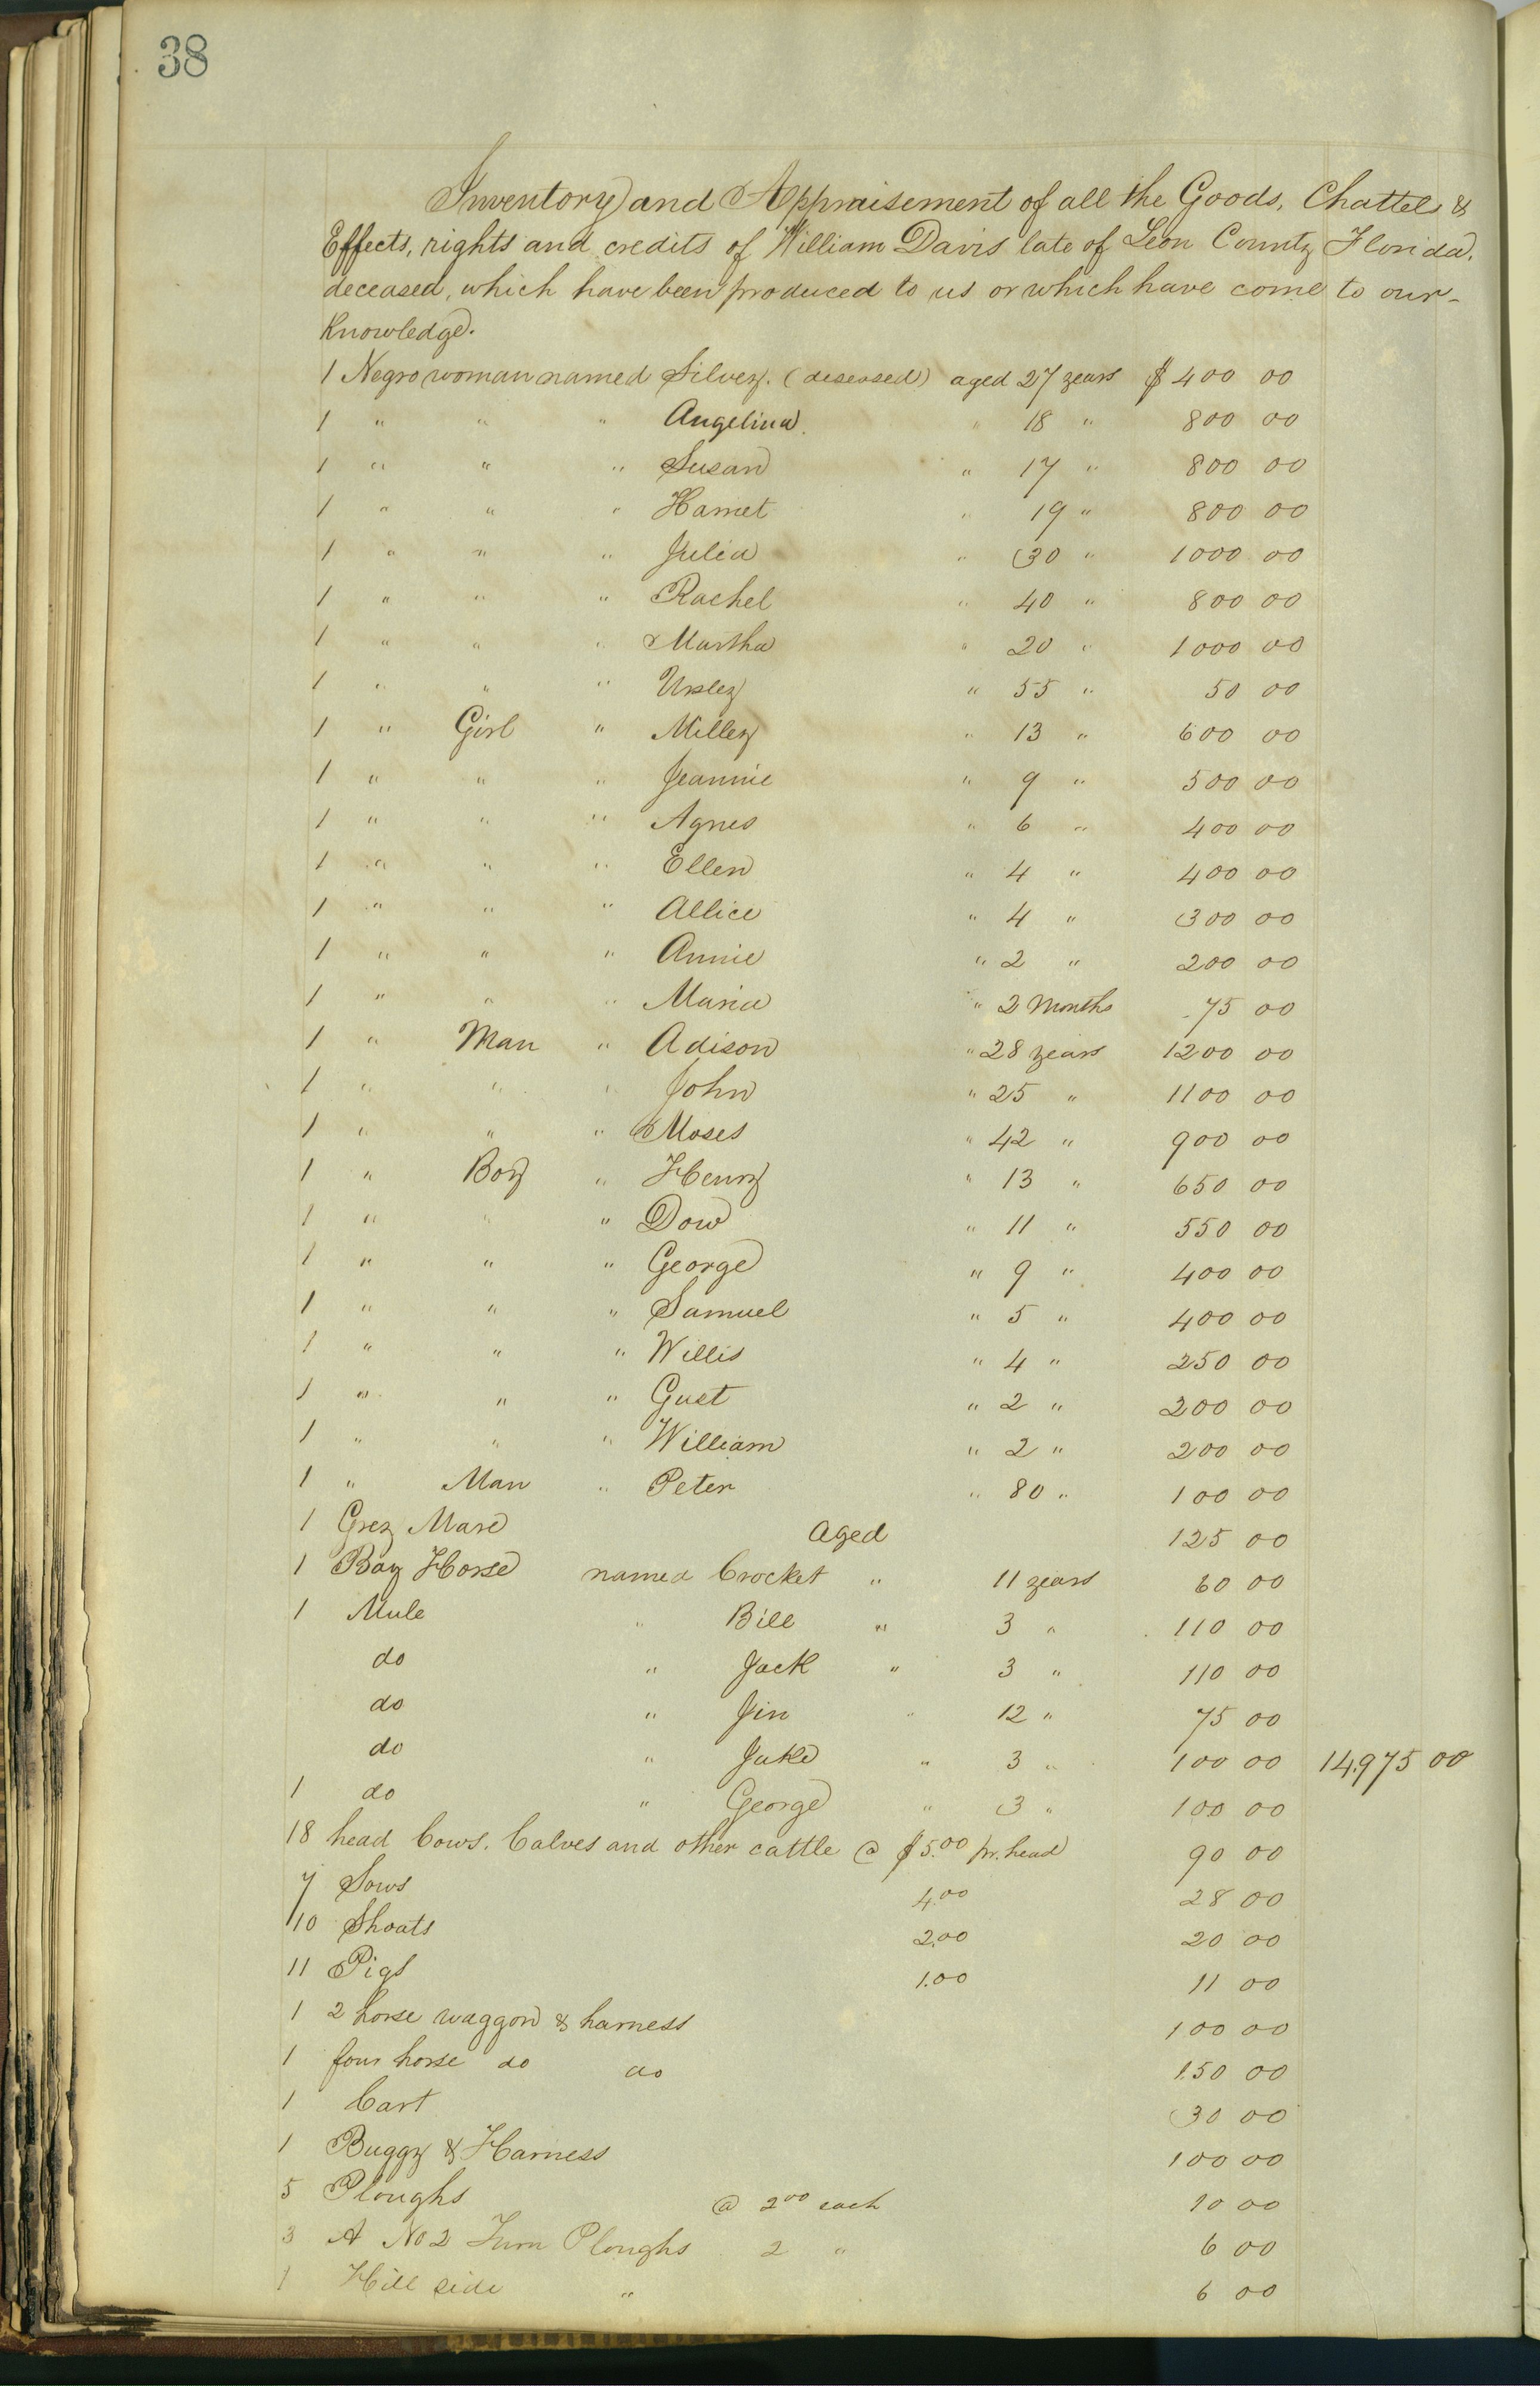 38
Inventory and Appraisement of all the Goods, Chattels &
Effects, rights and credits of William Davis late of Leon County Florida,
deceased, which have been produced to us or which have come to our-
knowledge.
1 Negro woman named Silvey. (deseased) aged 27 years $ 400 00
1 " " " Angelina. " 18 " 800 00
1 " " " Susan " 17 " 800 00
1 " " " Harriet " 19 " 800 00
1 " " " Julia " 30 " 1000 00
1 " " " Rachel " 40 " 800 00
1 " " " Martha " 20 " 1000 00
1 " " " Ursley " 55 " 50 00
1 " Girl " Milley " 13 " 600 00
1 " " " Jeannie " 9 " 500 00
1 " " " Agnes " 6 " 400 00
1 " " " Ellen " 4 " 400 00
1 " " " Allice " 4 " 300 00
1 " " " Annie " 2 " 200 00
1 " " " Maria " 2 Months 75 00
1 " Man " Adison " 28 years 1200 00
1 " " " John " 25 " 1100 00
1 " " " Moses " 42 " 900 00
1 " Boy " Henry " 13 " 650 00
1 " " " Dow " 11 " 550 00
1 " " " George " 9 " 400 00
1 " " " Samuel " 5 " 400 00
1 " " " Willis " 4 " 250 00
1 " " " Gust " 2 " 200 00
1 " " " William " 2 " 200 00
1 " Man " Peter " 80 " 100 00
1 Grey Mare Aged 125 00
1 Bay Horse named Crocket " 11 years 60 00
1 Mule " Bill " 3 " 110 00
do " Jack " 3 " 110 00
do " Jin " 12 " 75 00
do " Jake " 3 " 100 00 14,975 00
1 do " George " 3 " 100 00
18 head Cows, Calves and other cattle @ $5.00 pr. head 90 00
7 Sows 4.00 28 00
10 Shoats 2.00 20 00
11 Pigs 1.00 11 00
1 2 horse waggon & harness 100 00
1 four horse do do 150 00
1 Cart 30 00
1 Buggy & Harness 100 00
5 Ploughs @ 2 00 each 10 00
3 A No 2 Turn Ploughs 2 " 6 00
1 Hill side " 6 00